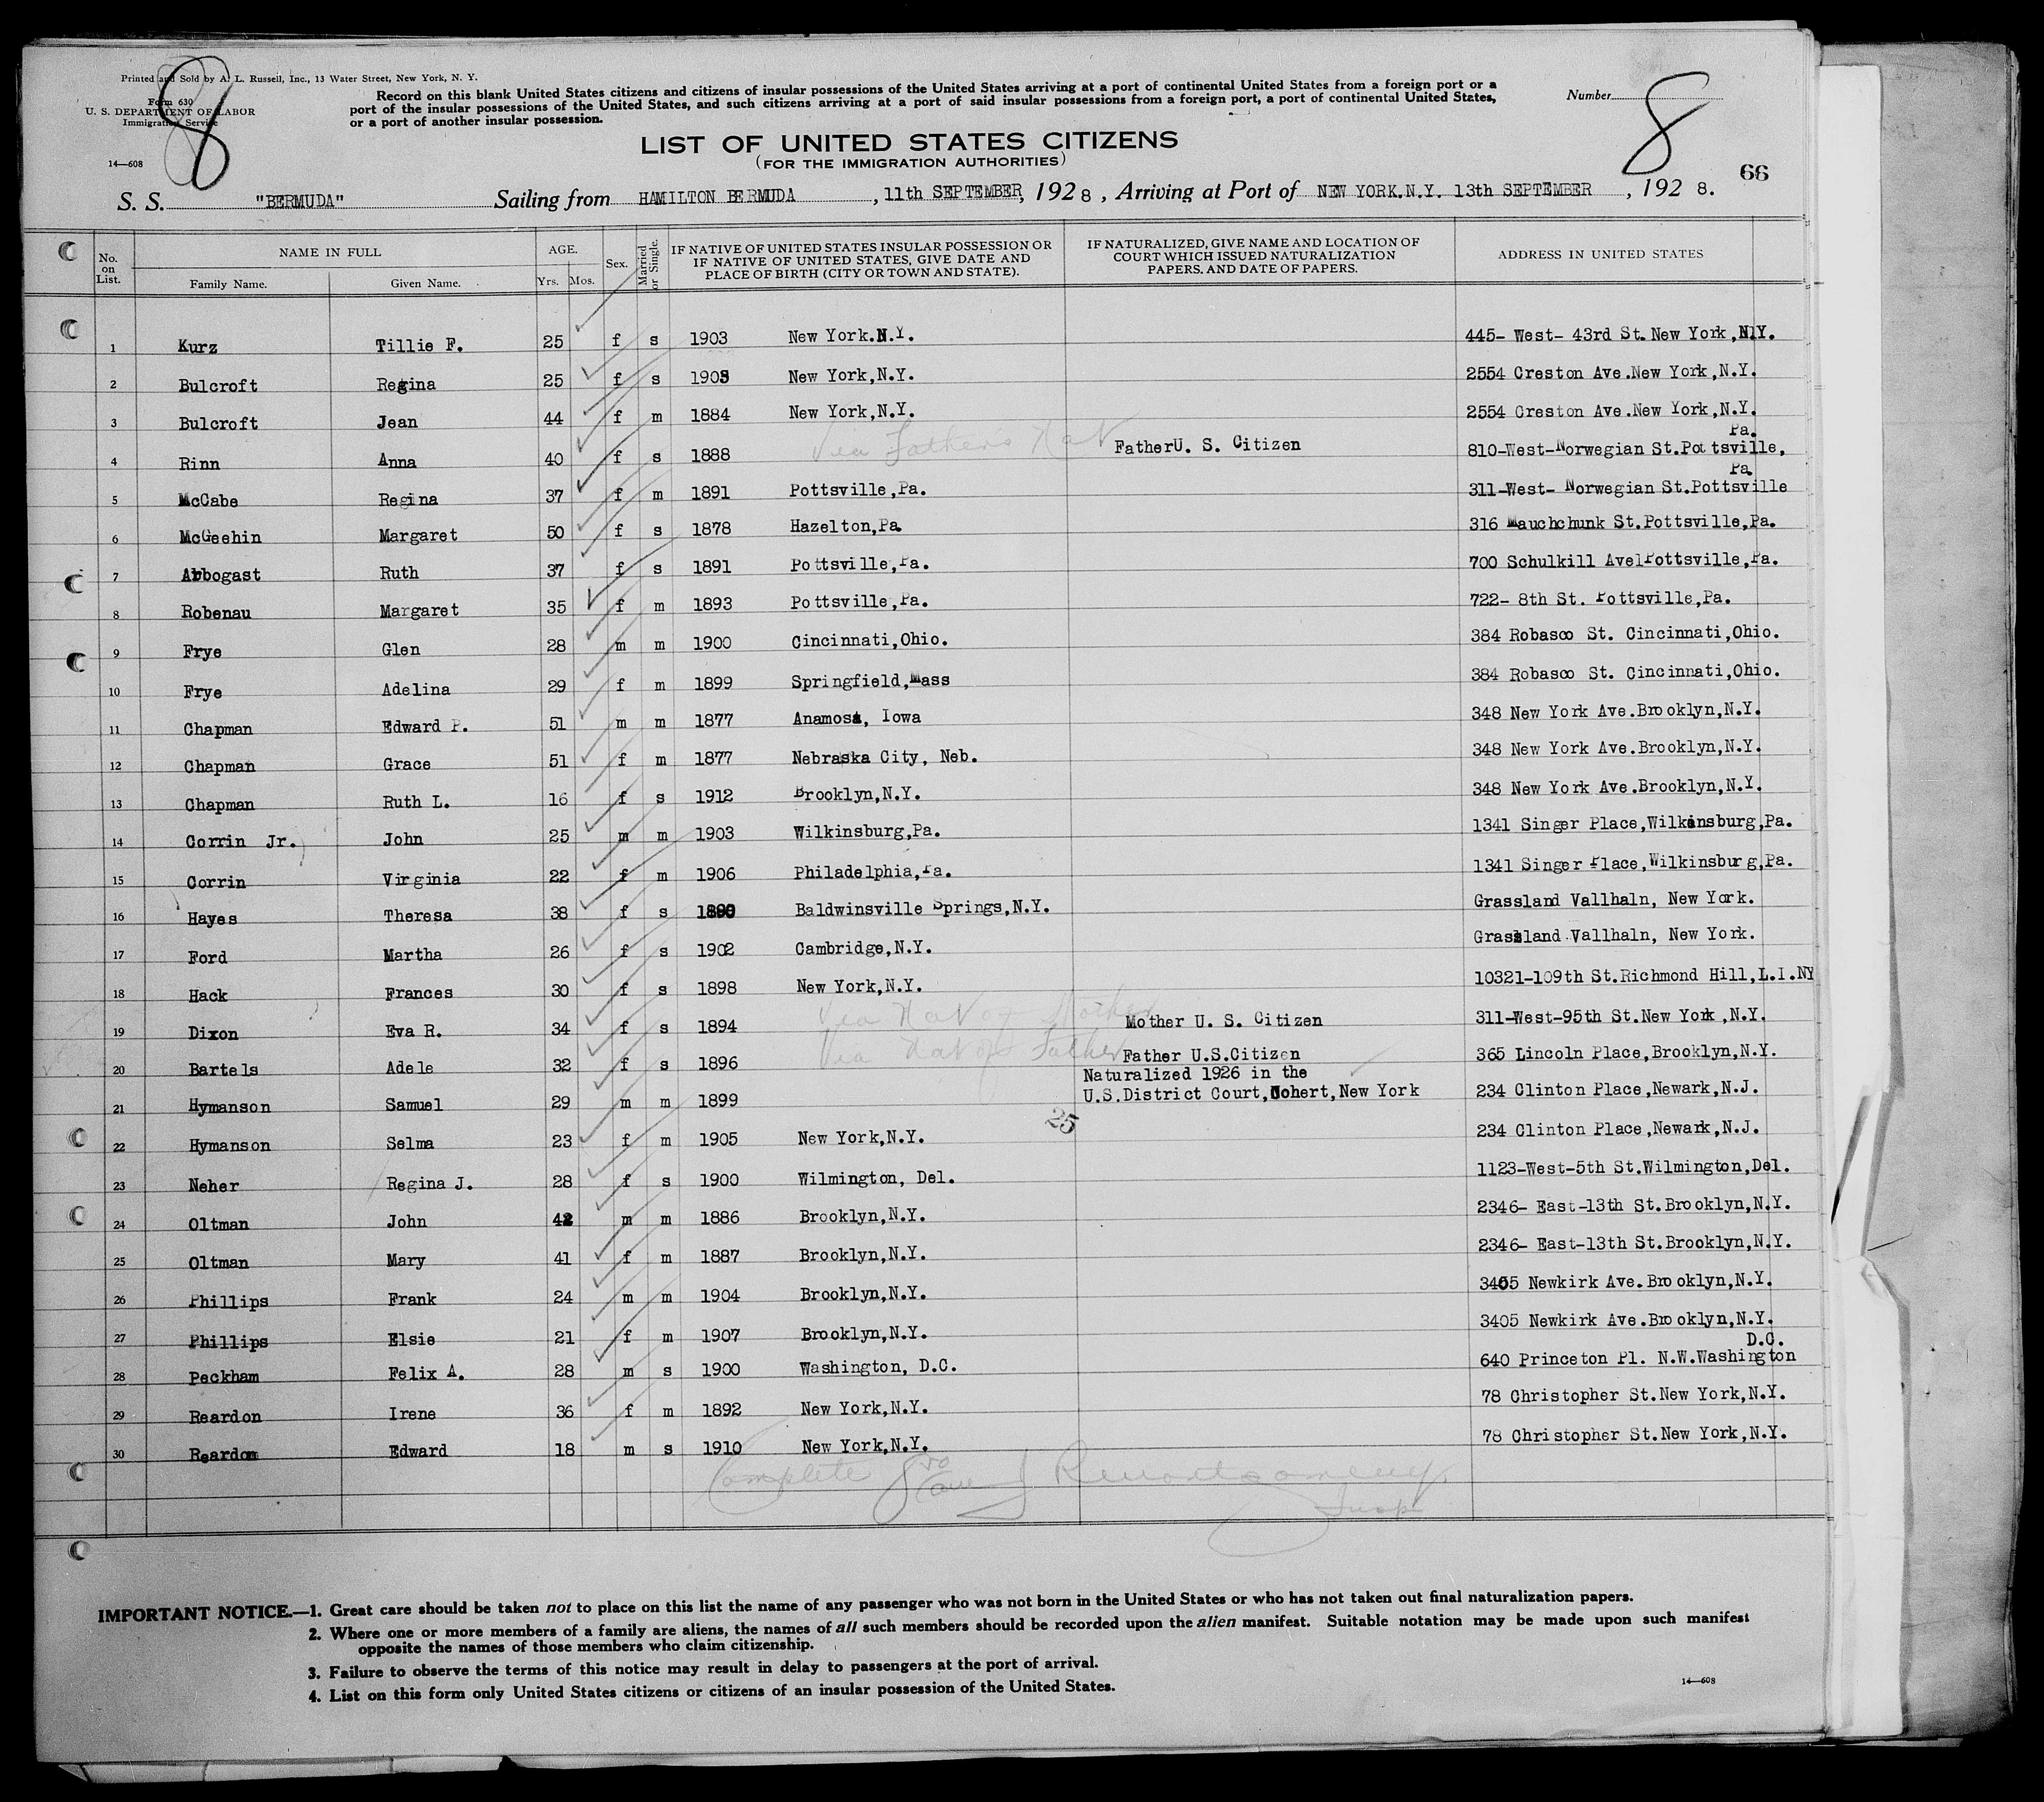 Printed and Sold by A. L. Russell, Inc., 13 Water Street, New York, N. Y.
Form 630
U. S. DEPARTMENT OF LABOR
Immigration Service
14—608
8
Record on this blank United States citizens and citizens of insular possessions of the United States arriving at a port of continental United States from a foreign port or a
port of the insular possessions of the United States, and such citizens arriving at a port of said insular possessions from a foreign port, a port of continental United States,
or a port of another insular possession.
Number
8
66
LIST OF UNITED STATES CITIZENS
(FOR THE IMMIGRATION AUTHORITIES)
S. S. "BERMUDA" Sailing from HAMILTON BERMUDA, 11th SEPTEMBER, 1928, Arriving at Port of NEW YORK.N.Y. 13th SEPTEMBER, 1928.
No. on List. NAME IN FULL Family Name. Given Name. AGE. Yrs. Mos. Sex. Married or Single. IF NATIVE OF UNITED STATES INSULAR POSSESSION OR IF NATIVE OF UNITED STATES, GIVE DATE AND PLACE OF BIRTH (CITY OR TOWN AND STATE). IF NATURALIZED, GIVE NAME AND LOCATION OF COURT WHICH ISSUED NATURALIZATION PAPERS, AND DATE OF PAPERS. ADDRESS IN UNITED STATES
1 Kurz Tillie F. 25 f s 1903 New York.N.Y. 445- West- 43rd St. New York,N.Y.
2 Bulcroft Regina 25 f s 1903 New York,N.Y. 2554 Creston Ave.New York,N.Y.
3 Bulcroft Jean 44 f m 1884 New York,N.Y. 2554 Creston Ave.New York,N.Y.
4 Rinn Anna 40 f s 1888 Via Father's Nat Father U. S. Citizen 810-West-Norwegian St.Pottsville, Pa.
5 McCabe Regina 37 f m 1891 Pottsville,Pa. 311-West- Norwegian St.Pottsville Pa.
6 McGeehin Margaret 50 f s 1878 Hazelton,Pa. 316 Mauchchunk St.Pottsville,Pa.
7 Arbogast Ruth 37 f s 1891 Pottsville,Pa. 700 Schulkill Ave.Pottsville,Pa.
8 Robenau Margaret 35 f m 1893 Pottsville,Pa. 722- 8th St. Pottsville,Pa.
9 Frye Glen 28 m m 1900 Cincinnati,Ohio. 384 Robasco St. Cincinnati,Ohio.
10 Frye Adelina 29 f m 1899 Springfield,Mass 384 Robasco St. Cincinnati,Ohio.
11 Chapman Edward P. 51 m m 1877 Anamosa, Iowa 348 New York Ave.Brooklyn,N.Y.
12 Chapman Grace 51 f m 1877 Nebraska City, Neb. 348 New York Ave.Brooklyn,N.Y.
13 Chapman Ruth L. 16 f s 1912 Brooklyn,N.Y. 348 New York Ave.Brooklyn,N.Y.
14 Corrin Jr. John 25 m m 1903 Wilkinsburg,Pa. 1341 Singer Place,Wilkinsburg,Pa.
15 Corrin Virginia 22 f m 1906 Philadelphia,Pa. 1341 Singer Place,Wilkinsburg,Pa.
16 Hayes Theresa 38 f s 1890 Baldwinsville Springs,N.Y. Grassland Vallhaln, New York.
17 Ford Martha 26 f s 1902 Cambridge,N.Y. Grassland Vallhaln, New York.
18 Hack Frances 30 f s 1898 New York,N.Y. 10321-109th St.Richmond Hill,L.I.NY
19 Dixon Eva R. 34 f s 1894 Via Nat of Mother Mother U. S. Citizen 311-West-95th St.New York,N.Y.
20 Bartels Adele 32 f s 1896 Via Nat of Father Father U.S.Citizen 365 Lincoln Place,Brooklyn,N.Y.
21 Hymanson Samuel 29 m m 1899 Naturalized 1926 in the U.S.District Court,Cohert,New York 234 Clinton Place,Newark,N.J.
25
22 Hymanson Selma 23 f m 1905 New York,N.Y. 234 Clinton Place,Newark,N.J.
23 Neher Regina J. 28 f s 1900 Wilmington, Del. 1123-West-5th St.Wilmington,Del.
24 Oltman John 42 m m 1886 Brooklyn,N.Y. 2346- East-13th St.Brooklyn,N.Y.
25 Oltman Mary 41 f m 1887 Brooklyn,N.Y. 2346- East-13th St.Brooklyn,N.Y.
26 Phillips Frank 24 m m 1904 Brooklyn,N.Y. 3405 Newkirk Ave.Brooklyn,N.Y.
27 Phillips Elsie 21 f m 1907 Brooklyn,N.Y. 3405 Newkirk Ave.Brooklyn,N.Y.
28 Peckham Felix A. 28 m s 1900 Washington, D.C. 640 Princeton Pl. N.W.Washington D.C.
29 Reardon Irene 36 f m 1892 New York,N.Y. 78 Christopher St.New York,N.Y.
30 Reardon Edward 18 m s 1910 New York,N.Y. 78 Christopher St.New York,N.Y.
Complete
Insp
IMPORTANT NOTICE.—1. Great care should be taken not to place on this list the name of any passenger who was not born in the United States or who has not taken out final naturalization papers.
2. Where one or more members of a family are aliens, the names of all such members should be recorded upon the alien manifest. Suitable notation may be made upon such manifest
opposite the names of those members who claim citizenship.
3. Failure to observe the terms of this notice may result in delay to passengers at the port of arrival.
4. List on this form only United States citizens or citizens of an insular possession of the United States.
14—608